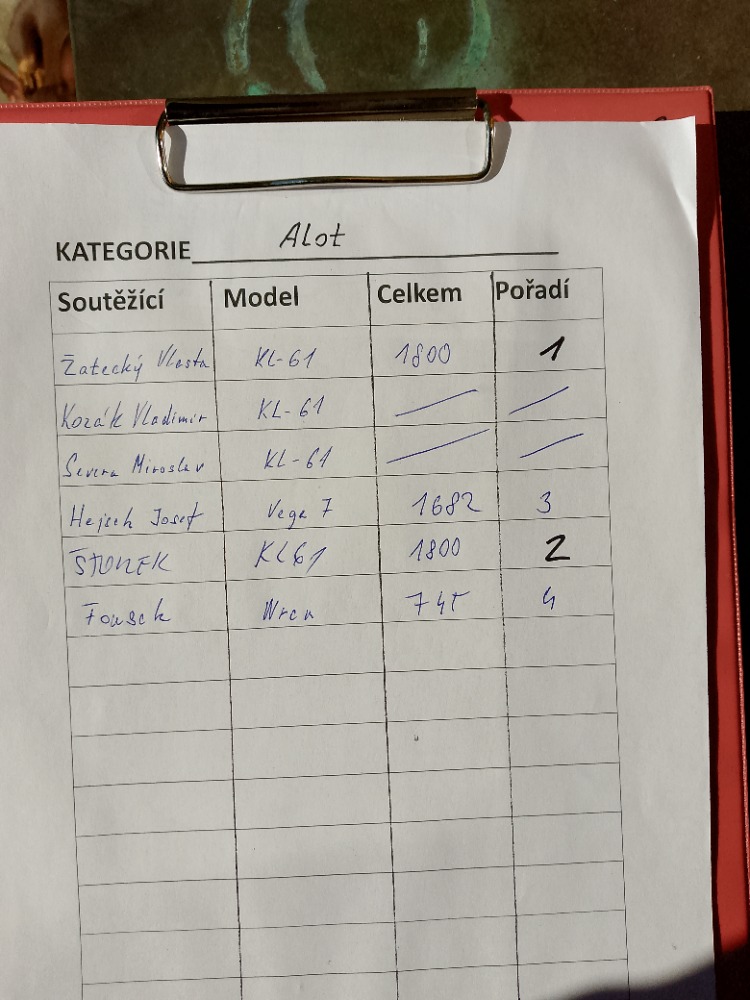 KATEGORIE Alot
Soutěžící Model Celkem Pořadí
Žatecký Vlasta KL-61 1800 1
Kozák Vladimír KL-61
Severa Miroslav KL-61
Hejsek Josef Vega 7 1682 3
KL61 1800 2
Fousek 745 4